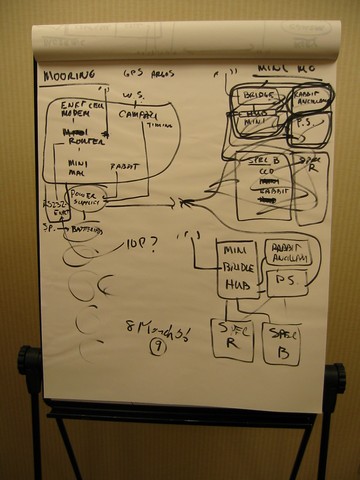 MOORING
GPS ARGOS
W.S.
MODEM
CAMPBELL
TIMING
ROUTER
MINI
MAC
RABBIT
POWER
SUPPLY
RS232
S.P.
BATTERIES
10P?
8 Months!
9
BRIDGE
HUB
MINI
RABBIT
ANCILLARY
P.S.
SPEC B
CCD
RABBIT
SPEC
R
MINI
BRIDGE
HUB
RABBIT
ANCILLARY
P.S.
SPEC
R
SPEC
B